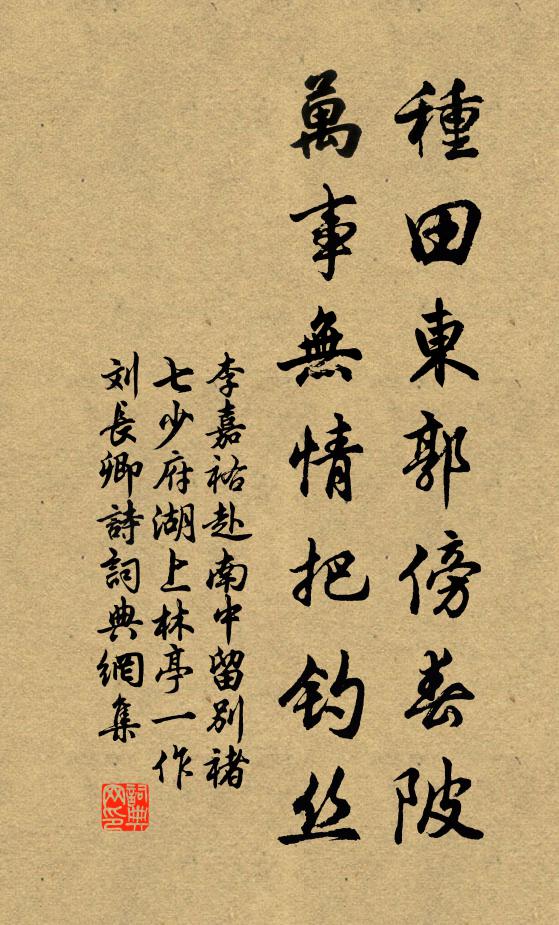 種田東郭傍春陂
萬事無情把钓丝
李嘉祐赴南中留别褚
七少府湖上林亭一作
刘長卿詩詞典網集
詞典网印